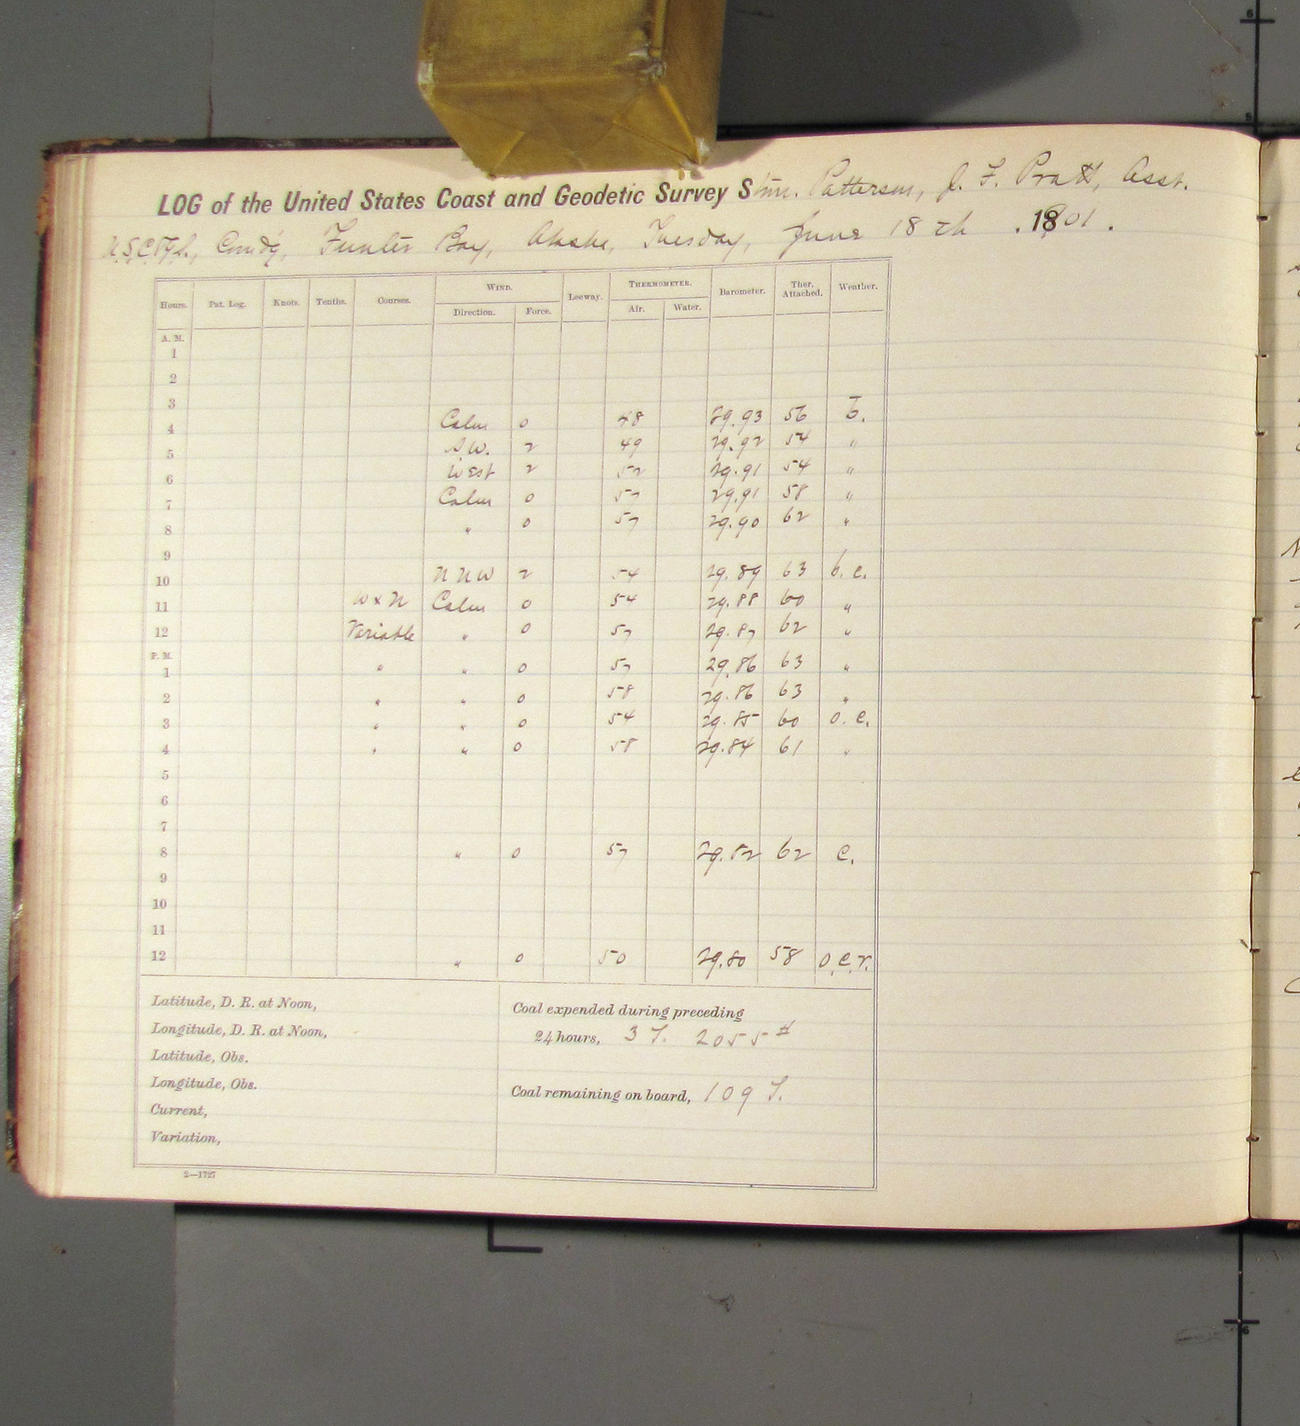 LOG of the United States Coast and Geodetic Survey Str. Patterson, J. F. Pratt, Asst.
U.S.C.&G.S., Comd'g, Funter Bay, Alaska, Tuesday, June 18th, 1901.
Hours. Pat. Log. Knots. Tenths. Courses. WIND. Leeway. THERMOMETER. Barometer. Ther. Attached. Weather.
Direction. Force. Air. Water.
A. M.
1
2
3
4 Calm 0 48 29.93 56 b.
5 S.W. 2 49 29.92 54 "
6 West 2 52 29.91 54 "
7 Calm 0 57 29.91 58 "
8 " 0 57 29.90 62 "
9
10 N N W 2 54 29.89 63 b. c.
11 W x N Calm 0 54 29.88 60 "
12 Variable " 0 57 29.87 62 "
P. M.
1 " " 0 57 29.86 63 "
2 " " 0 58 29.86 63 "
3 " " 0 54 29.85 60 o. c.
4 " " 0 58 29.84 61 "
5
6
7
8 " 0 57 29.82 62 c.
9
10
11
12 " 0 50 29.80 58 o.c.r.
Latitude, D. R. at Noon,
Longitude, D. R. at Noon,
Latitude, Obs.
Longitude, Obs.
Current,
Variation,
Coal expended during preceding
24 hours, 3 T. 2055 #
Coal remaining on board, 109 T.
2—1727